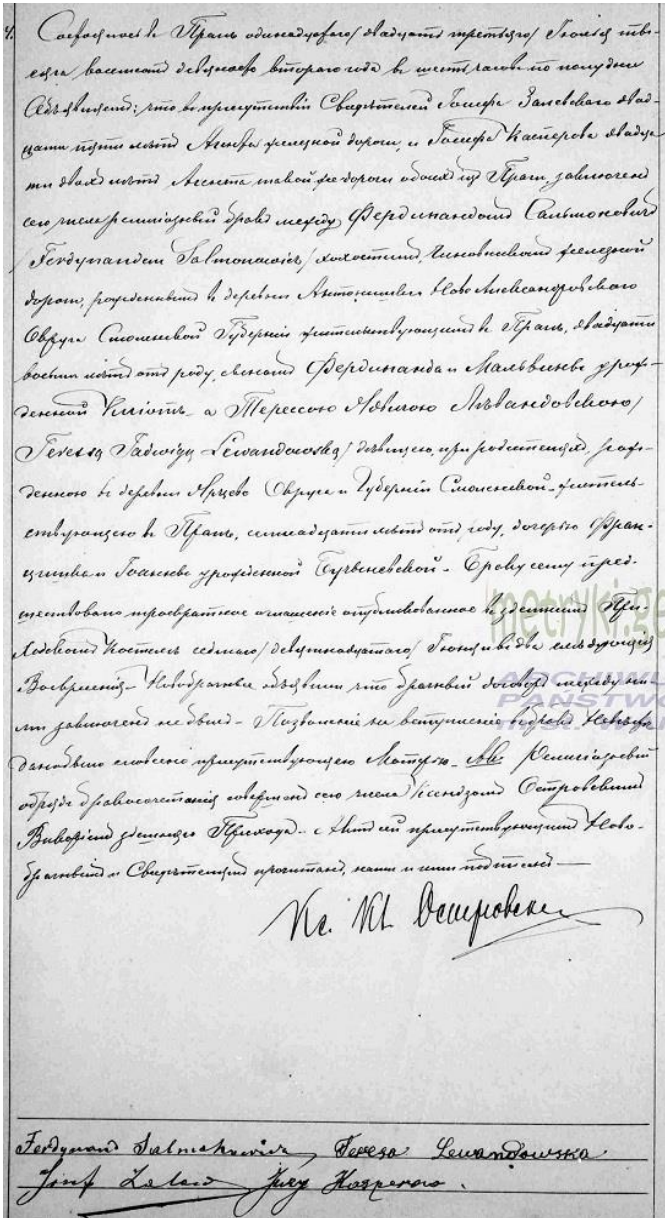 Состоялось в Праге одинадцатого / двадцать третьего / Іюля мѣ-
сяца восемсот девяносто втораго года в шесть часов по полудни
Объявляем: что в присутствіи Свидѣтелей Іосифа Залевскаго двад-
цати пяти лѣт желѣзной дороги, и Іосифа Касперова двадца
ти двох лѣт Агента таковой же дороги обоих из Праги, заключен
сего числа религіозный брак между Фердинандом Сальмоновичем
/ Ferdynandem Salmonowicz / холостым, чиновником желѣзной
дороги, рожденным в деревни Ново Александровскаго
Округа Смоленской Губерніи жительствующим в Прагѣ, двадцати
восьми лѣт от роду, сыном Фердинанда и Мальвины урож-
денной а Терессою Ядвигою Левандовскою /
Teressą Jadwigą Lewandowską / дѣвицею, при родителях, рож-
денною в деревни Ярцево Округа и Губерніи Смоленской жител-
ствующею в Прагѣ, семнадцати лѣт от роду, дочерью Фран-
цишка и урожденной - Браку сему пред-
шествовало троекратное оглашеніе опубликованное в здешнем При-
ходском Костелѣ седьмаго / девятнадцатаго / Іюня и в два слѣдующія
Воскресенія - Новобрачные объявили что брачный договор между ни-
ми заключен не был - Позволеніе на вступленіе в брак Невѣстѣ
дано было словесно присутствующею Матерью - Религіозный
обряд бракосочетанія совершен сего числа Ксендзом Островским
Викаріем здешнего Прихода - Акт сей присутствующим Ново-
брачным и Свидѣтелям прочитан, нами и ими подписан —
Кс. Островски
Ferdynand Salmonowicz, Teresa Lewandowska
Józef Zalew Kasperow.
metryki.ge
ARCHIWU
PAŃSTWO